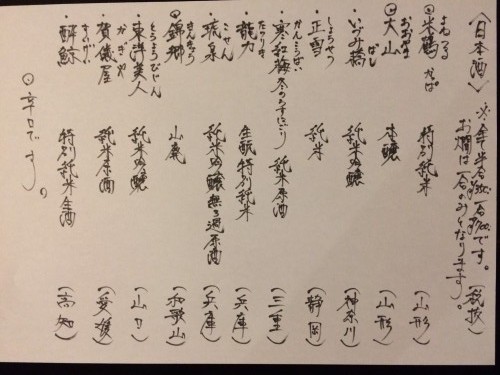 〈日本酒〉 ※全て半合 一合です。(税抜)
お燗は一合のみとなります。
よねつる
⊙米鶴 かっぱ 特別純米 (山形)
おおやま
⊙大山 本醸 (山形)
ばし
・いづみ橋 純米吟醸 (神奈川)
しょうせつ
・正雪 純米 (静岡)
かんこうばい
・寒紅梅 冬のうすにごり 純米原酒 (三重)
たつりき
・龍力 生酛特別純米 (兵庫)
こせん
・琥泉 純米吟醸無ろ過原酒 (兵庫)
きんきょう
⊙錦郷 山廃 (和歌山)
とうようびじん
・東洋美人 純米吟醸 (山口)
かぎや
・賀儀屋 純米原酒 (愛媛)
すいげい
・酔鯨 特別純米生酒 (高知)
⊙辛口です。